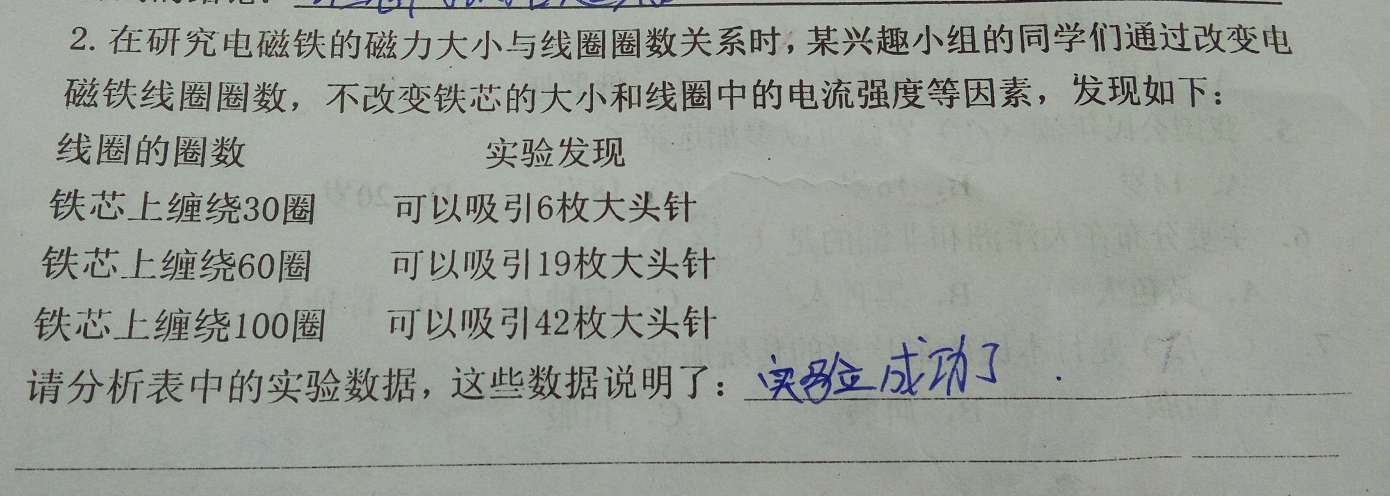 2. 在研究电磁铁的磁力大小与线圈圈数关系时,某兴趣小组的同学们通过改变电
磁铁线圈圈数,不改变铁芯的大小和线圈中的电流强度等因素,发现如下:
线圈的圈数 实验发现
铁芯上缠绕30圈 可以吸引6枚大头针
铁芯上缠绕60圈 可以吸引19枚大头针
铁芯上缠绕100圈 可以吸引42枚大头针
请分析表中的实验数据,这些数据说明了:实验成功了.